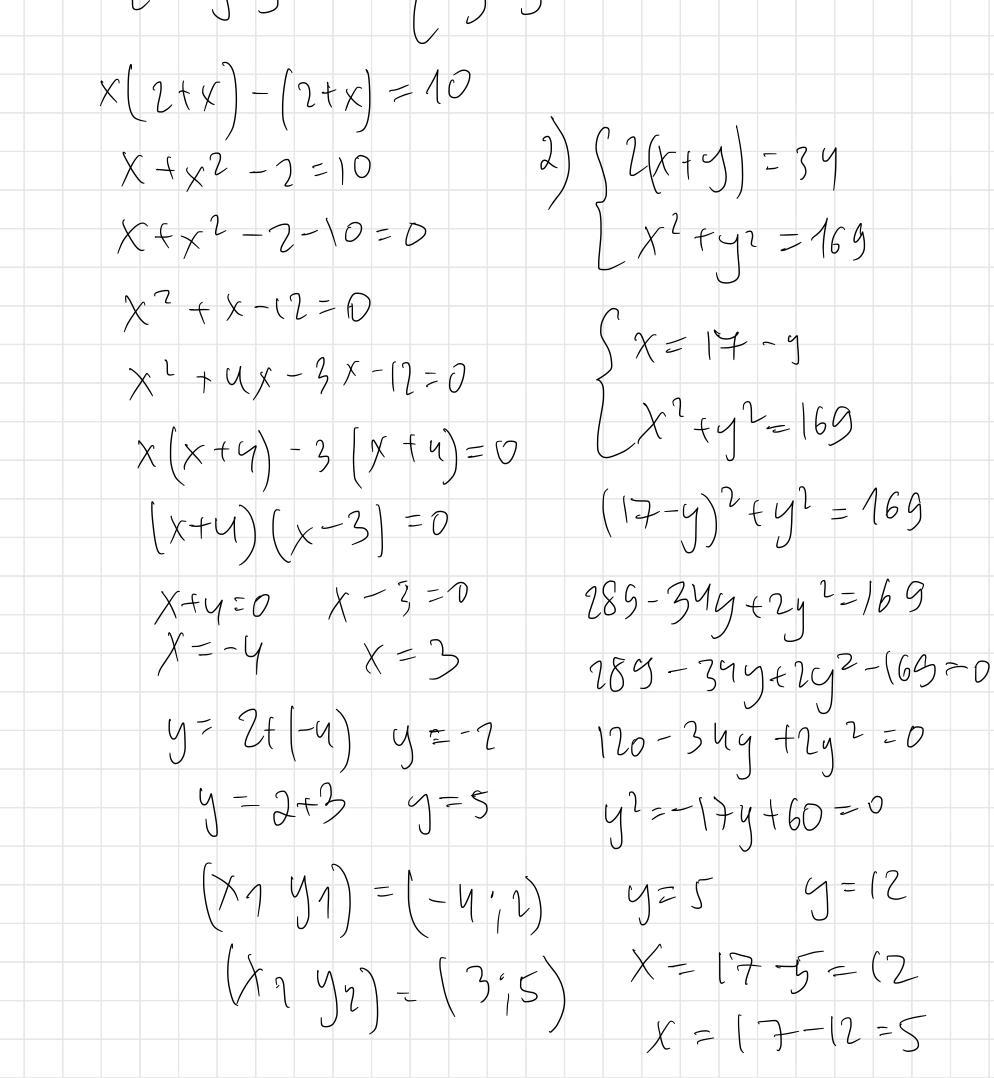 x(2+x)-(2+x)=10
x+x²-2=10
x+x²-2-10=0
x²+x-12=0
x²+4x-3x-12=0
x(x+4)-3(x+4)=0
(x+4)(x-3)=0
x+4=0 x-3=0
x=-4 x=3
y=2+(-4) y=-2
y=2+3 y=5
(x1 y1)=(-4;2)
(x2 y2)=(3;5)
2) { 2(x+y)=34
x²+y²=169
{ x=17-y
x²+y²=169
(17-y)²+y²=169
289-34y+2y²=169
289-34y+2y²-169=0
120-34y+2y²=0
y²=-17y+60=0
y=5 y=12
x=17-5=12
x=17-12=5